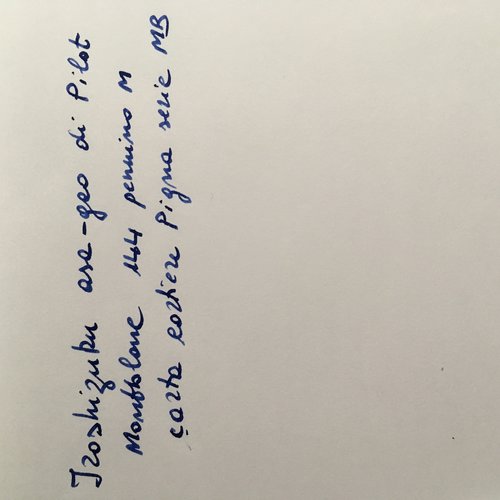 Iroshizuku asa-gao di Pilot
Montblanc 144 pennino M
carta cartiere Pigna serie MB